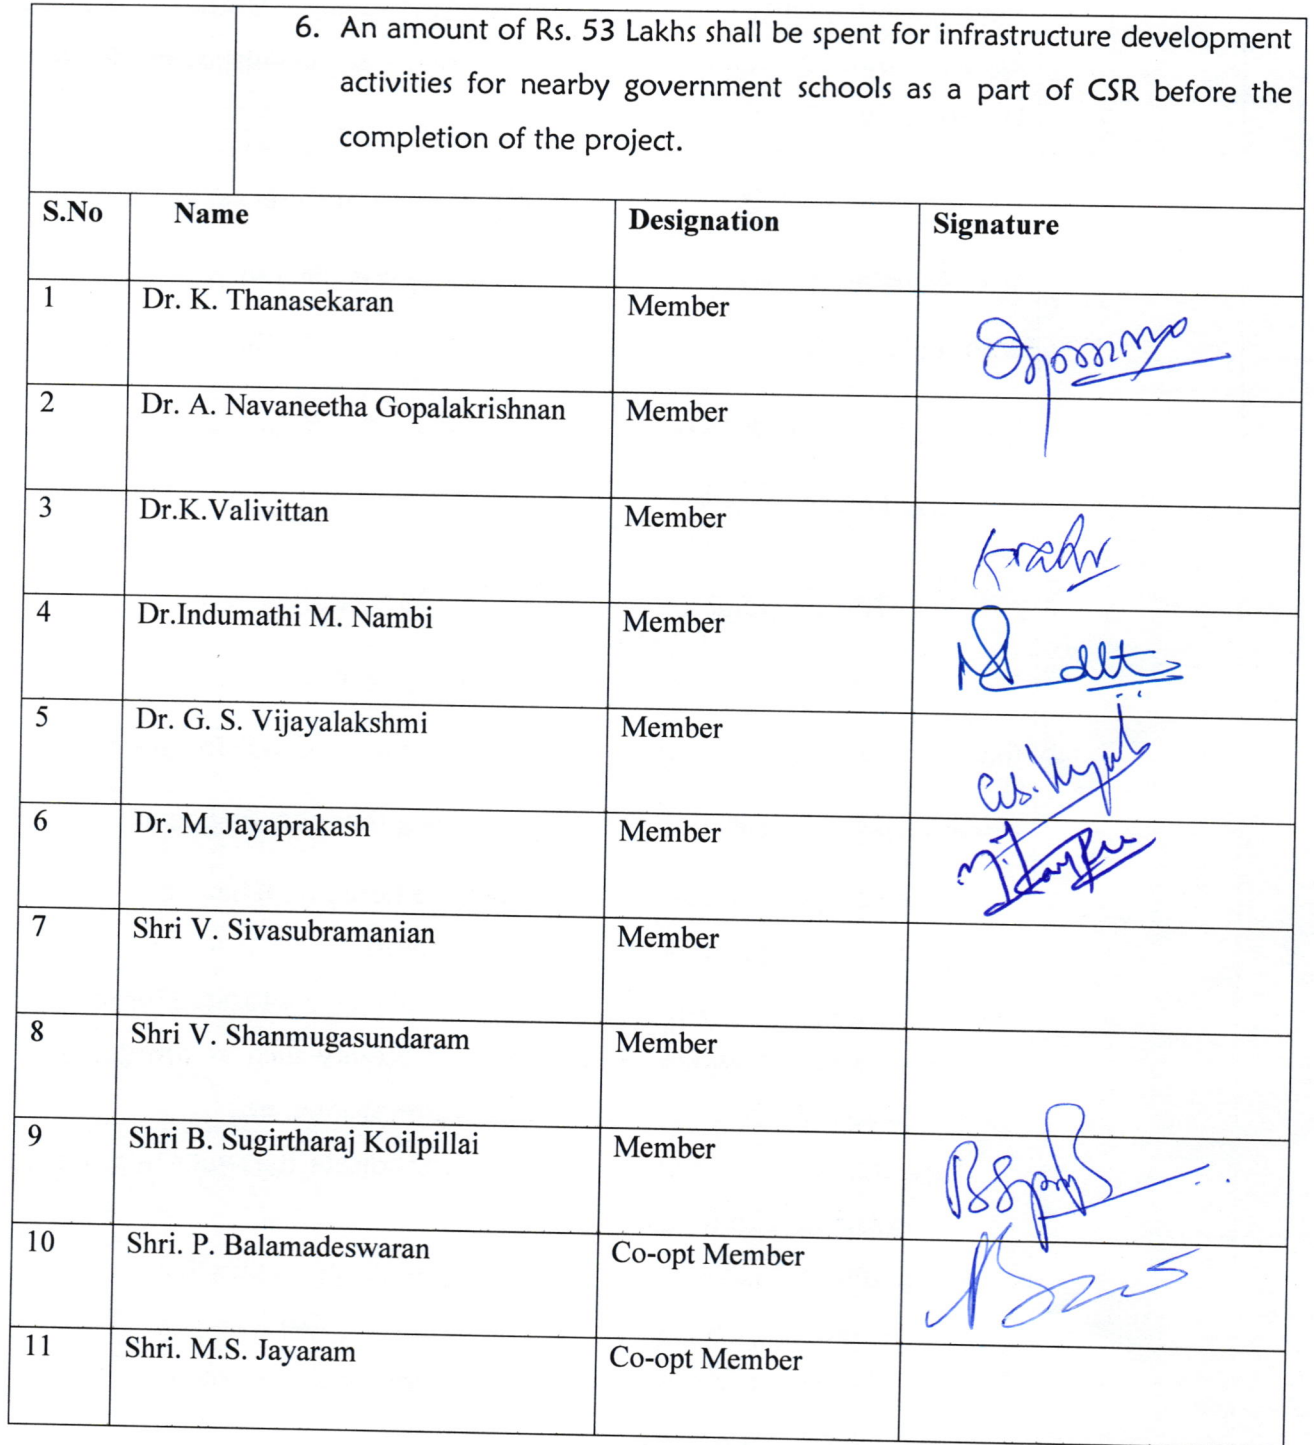 6. An amount of Rs. 53 Lakhs shall be spent for infrastructure development
activities for nearby government schools as a part of CSR before the
completion of the project.
S.No Name Designation Signature
1 Dr. K. Thanasekaran Member
2 Dr. A. Navaneetha Gopalakrishnan Member
3 Dr.K.Valivittan Member
4 Dr.Indumathi M. Nambi Member
5 Dr. G. S. Vijayalakshmi Member
6 Dr. M. Jayaprakash Member
7 Shri V. Sivasubramanian Member
8 Shri V. Shanmugasundaram Member
9 Shri B. Sugirtharaj Koilpillai Member
10 Shri. P. Balamadeswaran Co-opt Member
11 Shri. M.S. Jayaram Co-opt Member